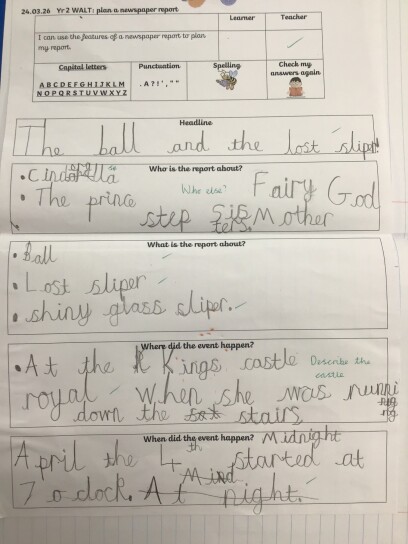 24.03.26 Yr 2 WALT: plan a newspaper report
Learner Teacher
I can use the features of a newspaper report to plan
my report.
Capital letters Punctuation Spelling Check my
answers again
A B C D E F G H I J K L M
N O P Q R S T U V W X Y Z
. A ? ! ' , " "
Headline
The ball and the lost sliper
Who is the report about?
• Cinderella
• The prince Who else? Fairy God
step sis Mother
ters.
What is the report about?
• Ball
• Lost sliper
• shiny glass sliper.
Where did the event happen?
• At the Kings castle Describe the
castle
royal when she was runni
ng
down the stairs
When did the event happen? Midnight
April the 4th started at
7 o clock. At Mind night.